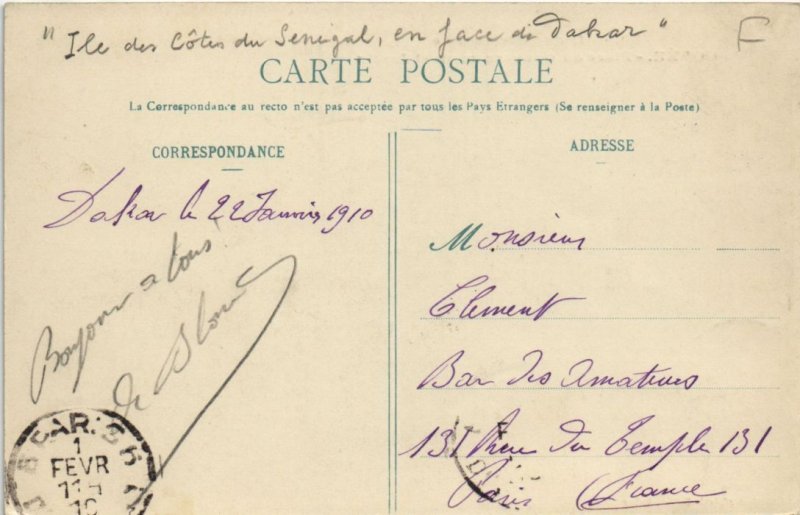 "Ile des Côtes du Senegal, en face de Dakar"
F
CARTE POSTALE
La Correspondance au recto n'est pas acceptée par tous les Pays Etrangers (Se renseigner à la Poste)
CORRESPONDANCE
Dakar le 22 Janvier 1910
Bonjour a tous
de
ADRESSE
Monsieur
Clement
Bar des Amateurs
131 Rue du Temple 131
Paris France
1
FEVR
10